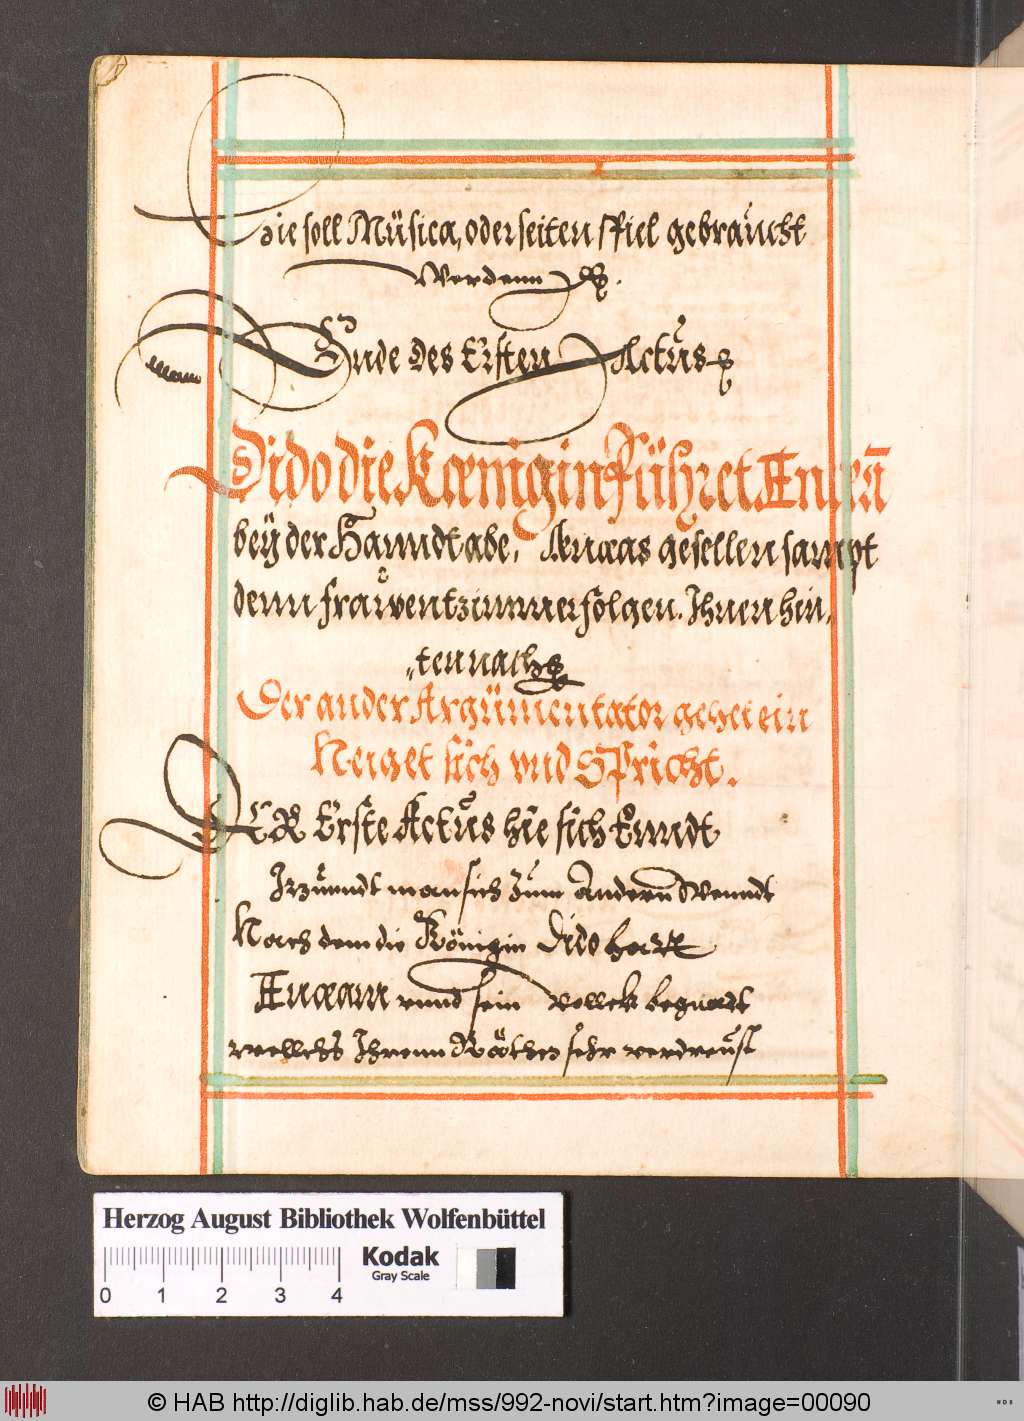 Hie soll Müsica, oder seiten spiel gebraücht
Werdenn
Ende des Ersten Actüs
Dido die Kœnigin führet Eneañ
beÿ der Hanndt abe, Æneas gesellen sampt
denn frawentzimmer folgen. Ihnen hin,
„ternach
Der ander Argümentator gehet ein
Neiget sich vnd Spricht.
DER Erste Actüs hie sich Enndt
Itzünndt man sich züm Anderñ Wenndt
Nach dem die Königin Dido hatt
Eneam vnnd sein vollck begnadt
wellchs Ihrenn Räthen sehr verdreüst
Herzog August Bibliothek Wolfenbüttel
Kodak
Gray Scale
0 1 2 3 4
© HAB http://diglib.hab.de/mss/992-novi/start.htm?image=00090